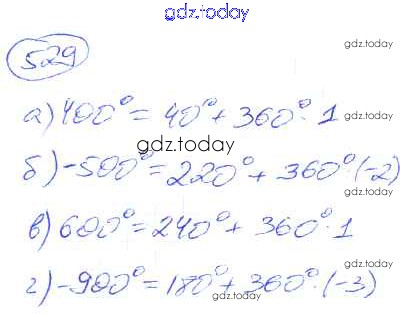 gdz.today
529
gdz.today
а) 400° = 40° + 360° · 1
gdz.today
gdz.today
б) -500° = 220° + 360° · (-2)
gdz.today
в) 600° = 240° + 360° · 1
gdz.today
г) -900° = 180° + 360° · (-3)
gdz.today